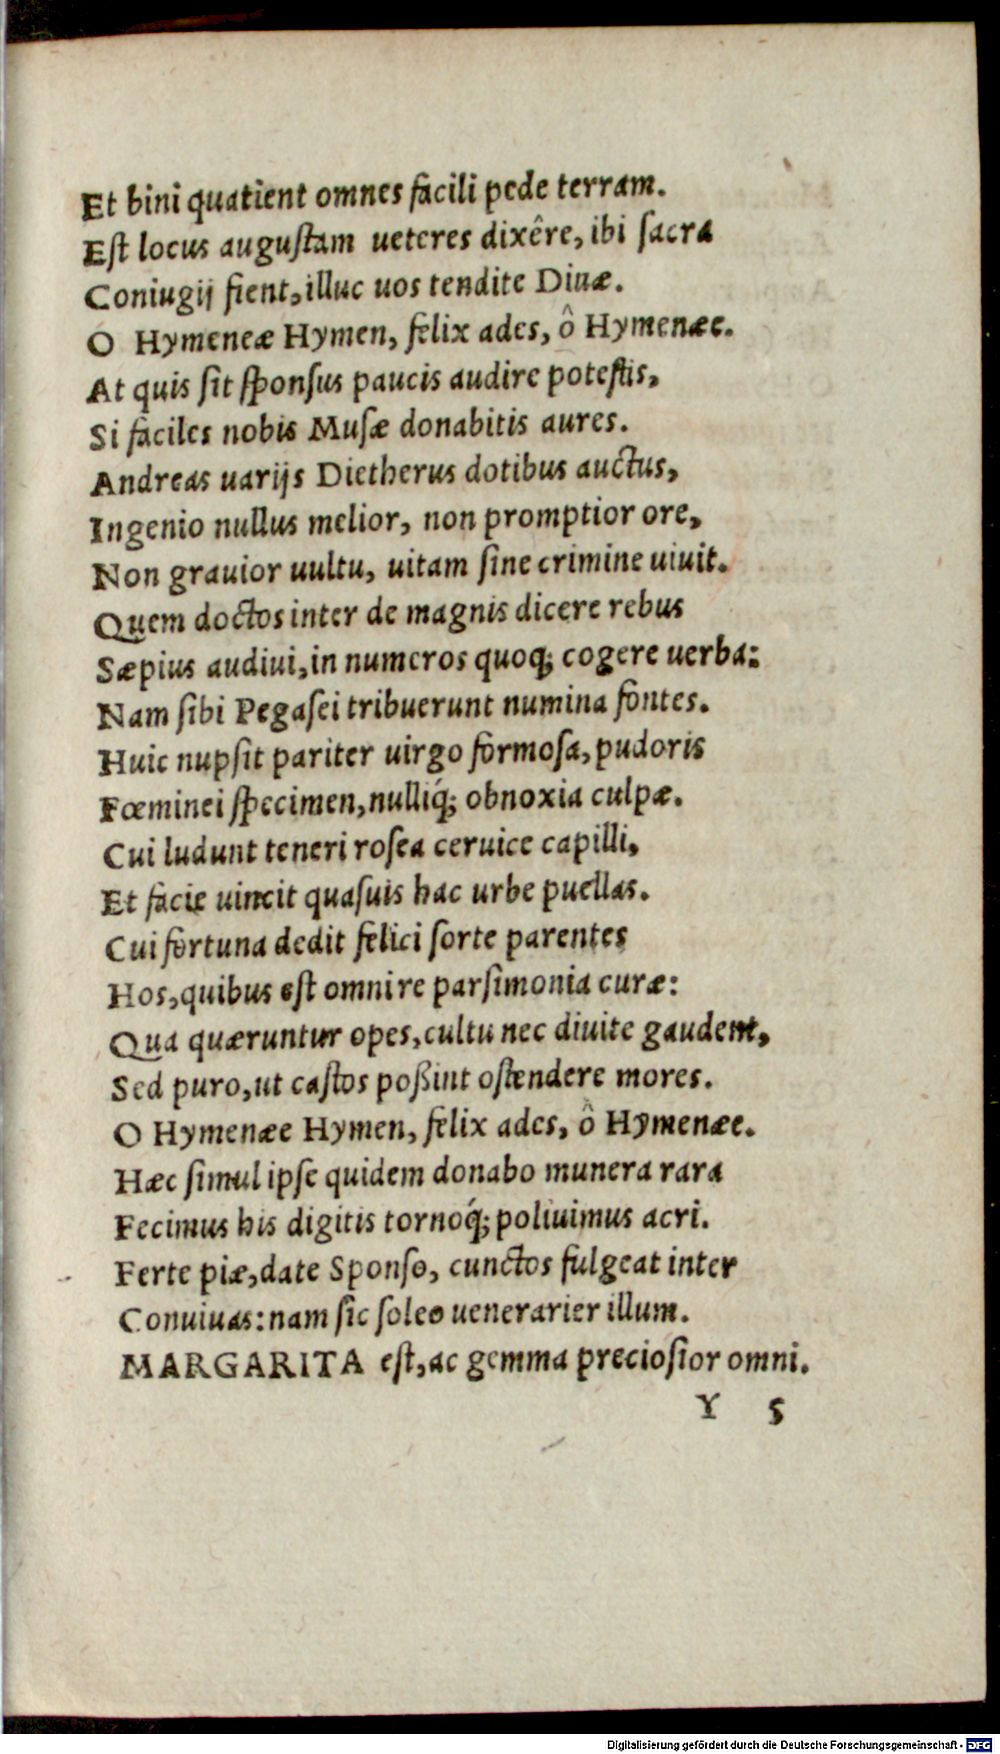 Et bini quatient omnes facili pede terram.
Est locus augustam ueteres dixêre, ibi sacra
Coniugij fient, illuc uos tendite Diuæ.
O Hymeneæ Hymen, felix ades, ô Hymenæe.
At quis sit sponsus paucis audire potestis,
Si faciles nobis Musæ donabitis aures.
Andreas uarijs Dietherus dotibus auctus,
Ingenio nullus melior, non promptior ore,
Non grauior uultu, uitam sine crimine uiuit.
Quem doctos inter de magnis dicere rebus
Sæpius audiui, in numeros quoq; cogere uerba:
Nam sibi Pegasei tribuerunt numina fontes.
Huic nupsit pariter uirgo formosa, pudoris
Fœminei specimen, nulliq́; obnoxia culpæ.
Cui ludunt teneri rosea ceruice capilli,
Et facie uincit quasuis hac urbe puellas.
Cui fortuna dedit felici sorte parentes
Hos, quibus est omni re parsimonia curæ:
Qua quæruntur opes, cultu nec diuite gaudent,
Sed puro, ut castos poßint ostendere mores.
O Hymenæe Hymen, felix ades, ô Hymenæe.
Hæc simul ipse quidem donabo munera rara
Fecimus his digitis tornoq́; poliuimus acri.
Ferte piæ, date Sponso, cunctos fulgeat inter
Conuiuas: nam sic soleo uenerarier illum.
MARGARITA est, ac gemma preciosior omni.
Y 5
Digitalisierung gefördert durch die Deutsche Forschungsgemeinschaft - DFG